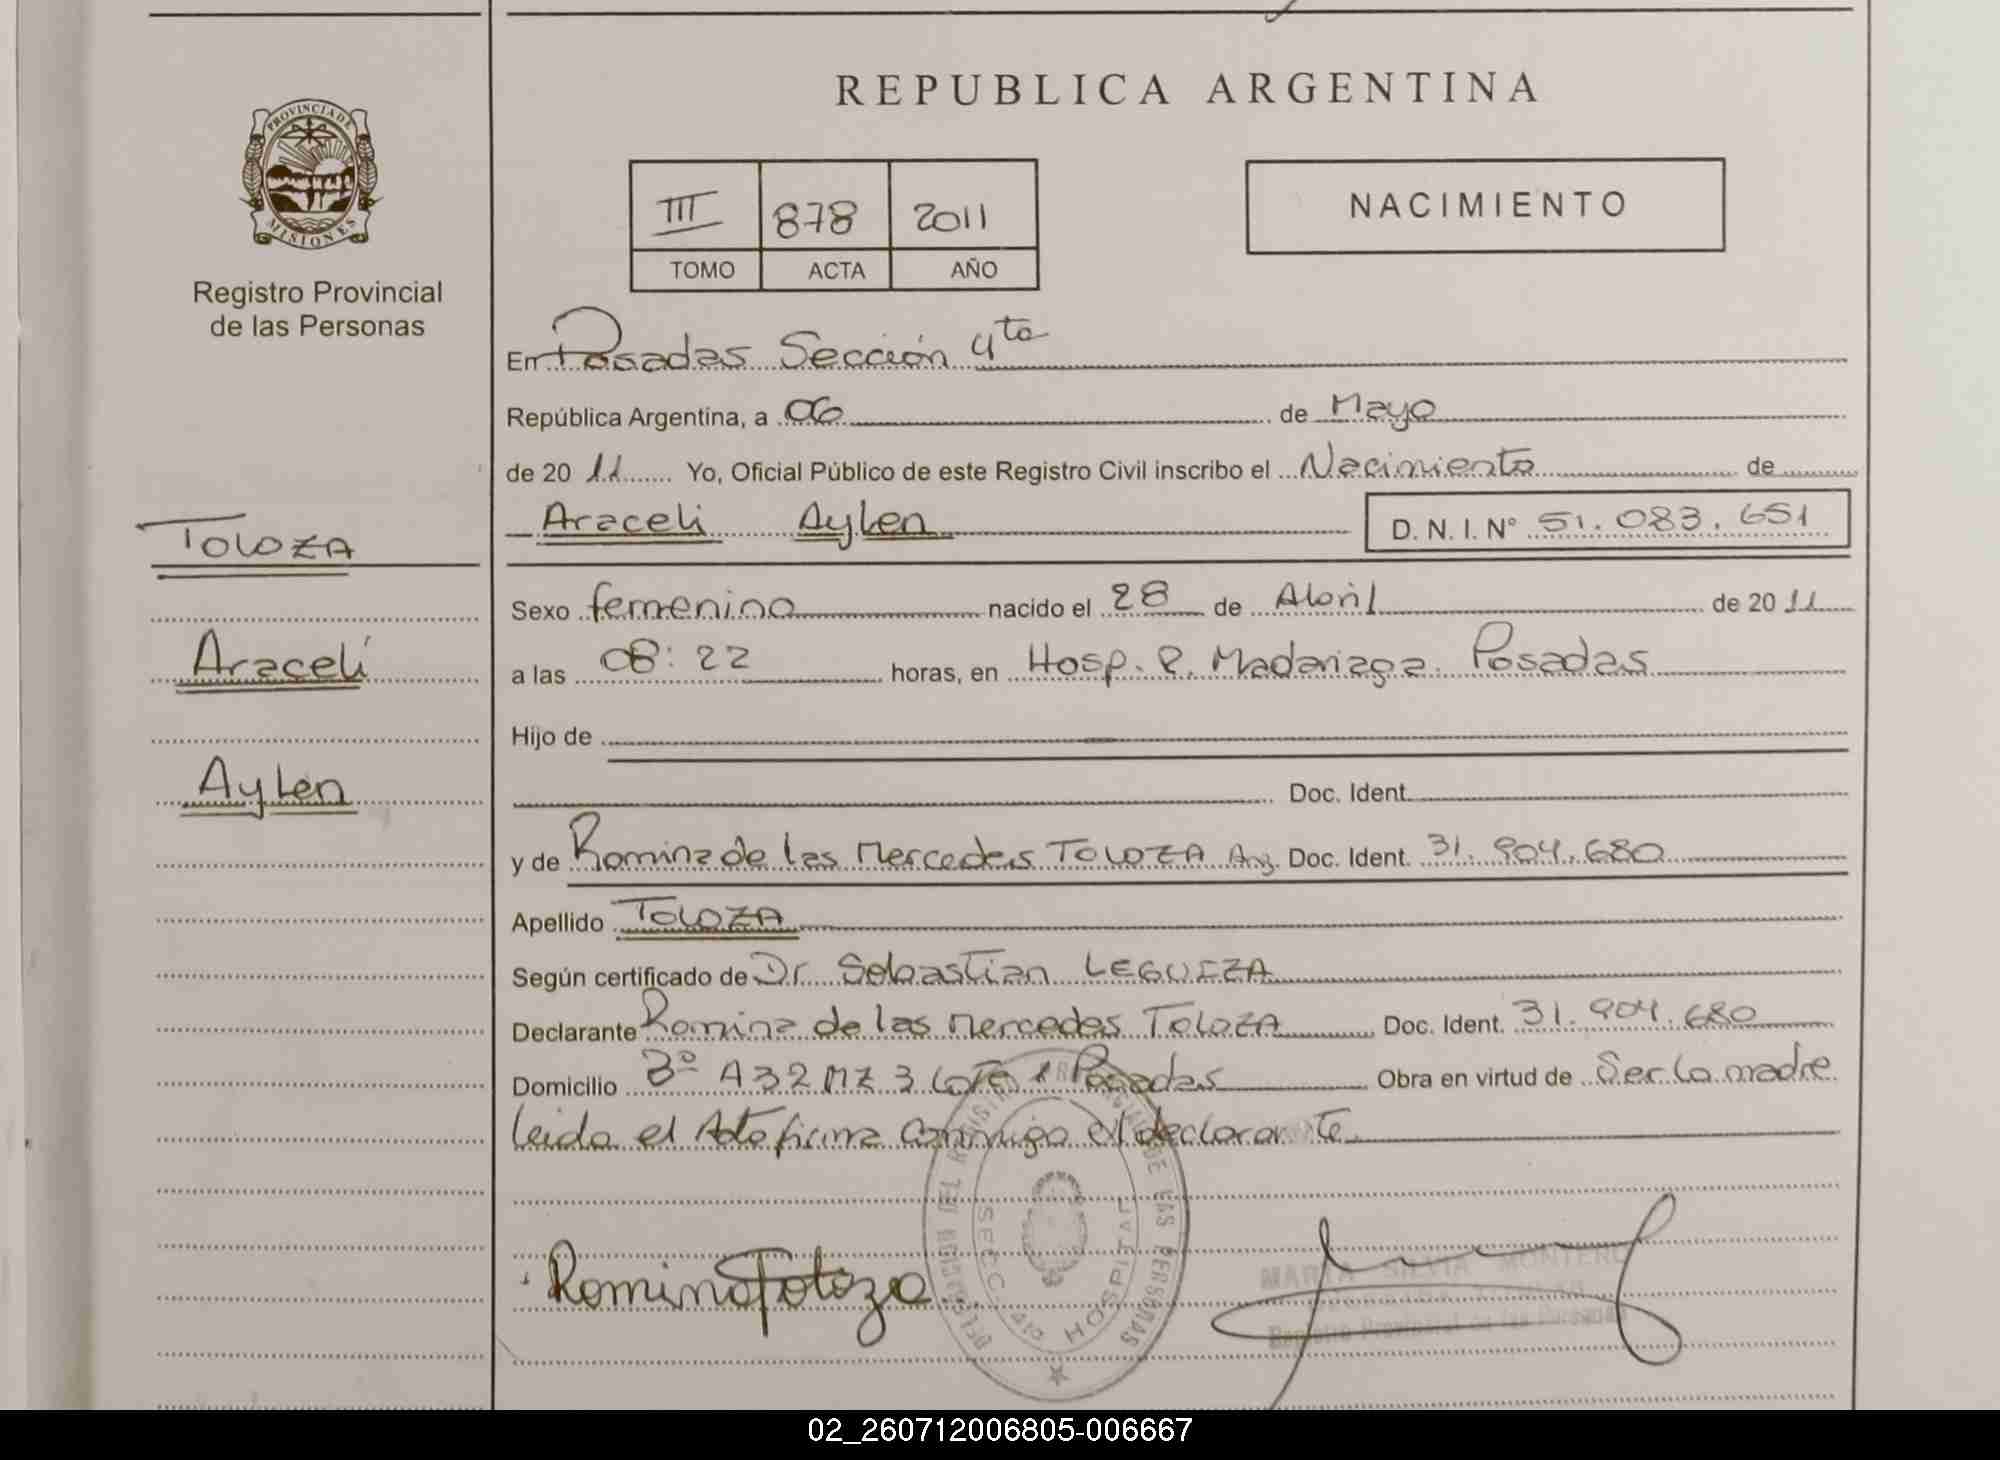 REPUBLICA ARGENTINA
PROVINCIA DE
MISIONES
Registro Provincial
de las Personas
III 878 2011
TOMO ACTA AÑO
NACIMIENTO
En Posadas Sección 4ta
República Argentina, a 06 de Mayo
de 2011 Yo, Oficial Público de este Registro Civil inscribo el Nacimiento de
Araceli Aylen D. N. I. Nº 51.083.651
TOLOZA
Araceli
Aylen
Sexo femenino nacido el 28 de Abril de 2011
a las 08:22 horas, en Hosp. R. Madariaga. Posadas
Hijo de
Doc. Ident.
y de Romina de las Mercedes TOLOZA Arg. Doc. Ident. 31.904.680
Apellido TOLOZA
Según certificado de Dr. Sebastian LEGUIZA
Declarante Romina de las Mercedes TOLOZA Doc. Ident. 31.904.680
Domicilio A32 MZ 3 Lote 1 Posadas Obra en virtud de Ser la madre
leida el Acta firma conmigo el declarante
Romina Toloza
SECC. 4ta HOSPITAL
MARTA SILVIA MONTERO
Registro Provincial de las Personas
02_260712006805-006667